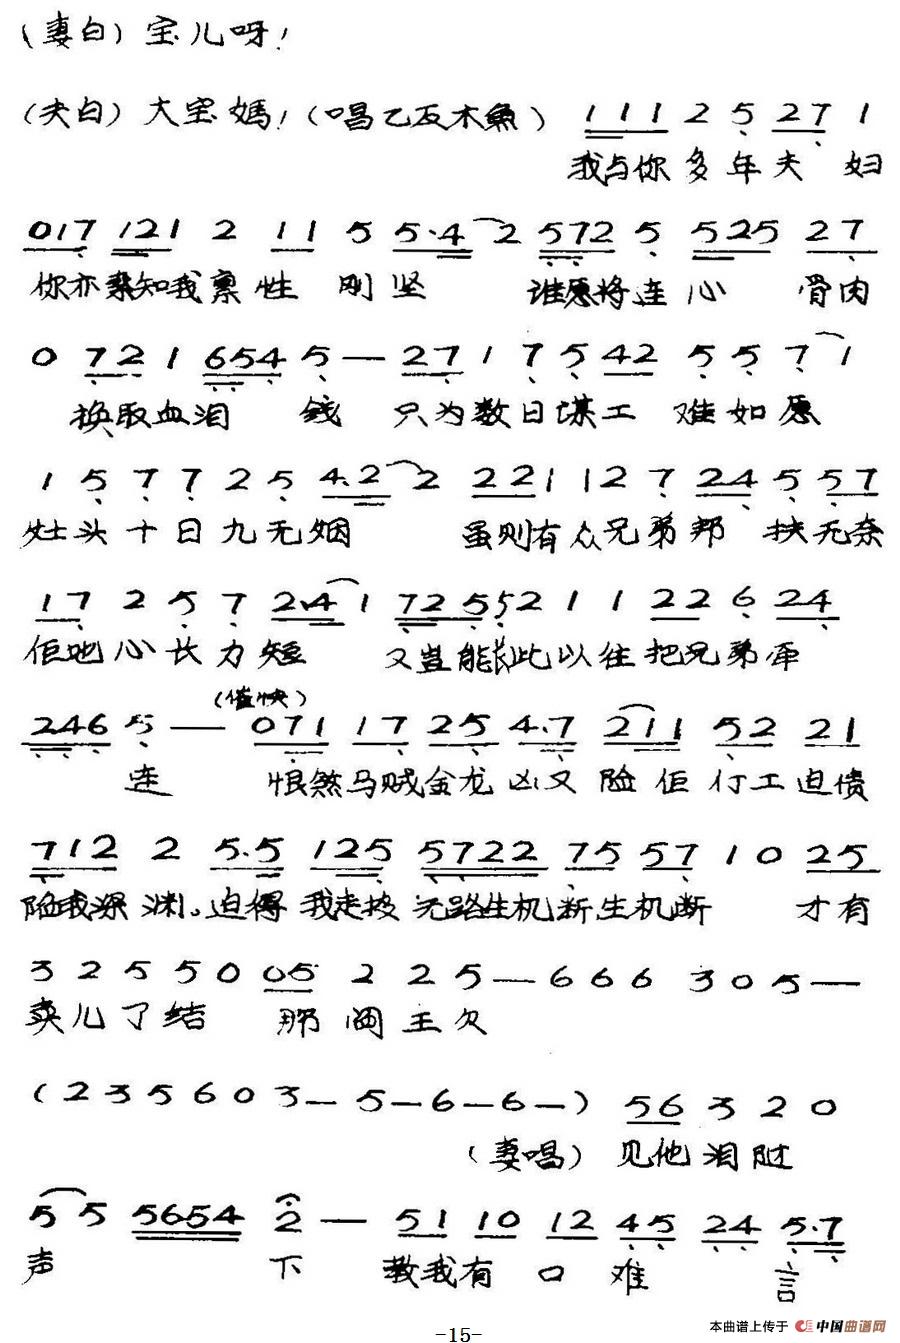 (妻白) 宝儿呀！
(夫白) 大宝媽！(唱乙反木魚) 1 1 1 2 5 2 7 1
我与你多年夫妇
0 1 7 1 2 1 2 1 1 5 5·4 2 5 7 2 5 5 2 5 2 7
你亦素知我禀性刚坚 谁愿将连心骨肉
0 7 2 1 6 5 4 5 — 2 7 1 7 5 4 2 5 5 7 1
换取血泪钱 只为数日谋工难如愿
1 5 7 7 2 5 4·2 2 2 2 1 1 2 7 2 4 5 5 7
灶头十日九无烟 虽则有众兄弟邦扶无奈
1 7 2 5 7 2·4 1 7 2 5 5 2 1 1 2 2 6 2 4
佢哋心长力短 又岂能长此以往把兄弟牵
(催快)
2 4 6 5 — 0 7 1 1 7 2 5 4·7 2 1 1 5 2 2 1
连 恨煞马贼金龙凶又险佢行工迫债
7 1 2 2 5·5 1 2 5 5 7 2 2 7 5 5 7 1 0 2 5
陷我深渊。迫得我走投无路生机断生机断 才有
3 2 5 5 0 0 5 2 2 5 — 6 6 6 3 0 5 —
卖儿了结 那阎王欠
( 2 3 5 6 0 3 — 5 — 6 — 6 — ) 5 6 3 2 0
(妻唱) 见他泪
5 5 5 6 5 4 2 — 5 1 1 0 1 2 4 5 2 4 5·7
声下 教我有口难言
-15-
本曲谱上传于 中国曲谱网